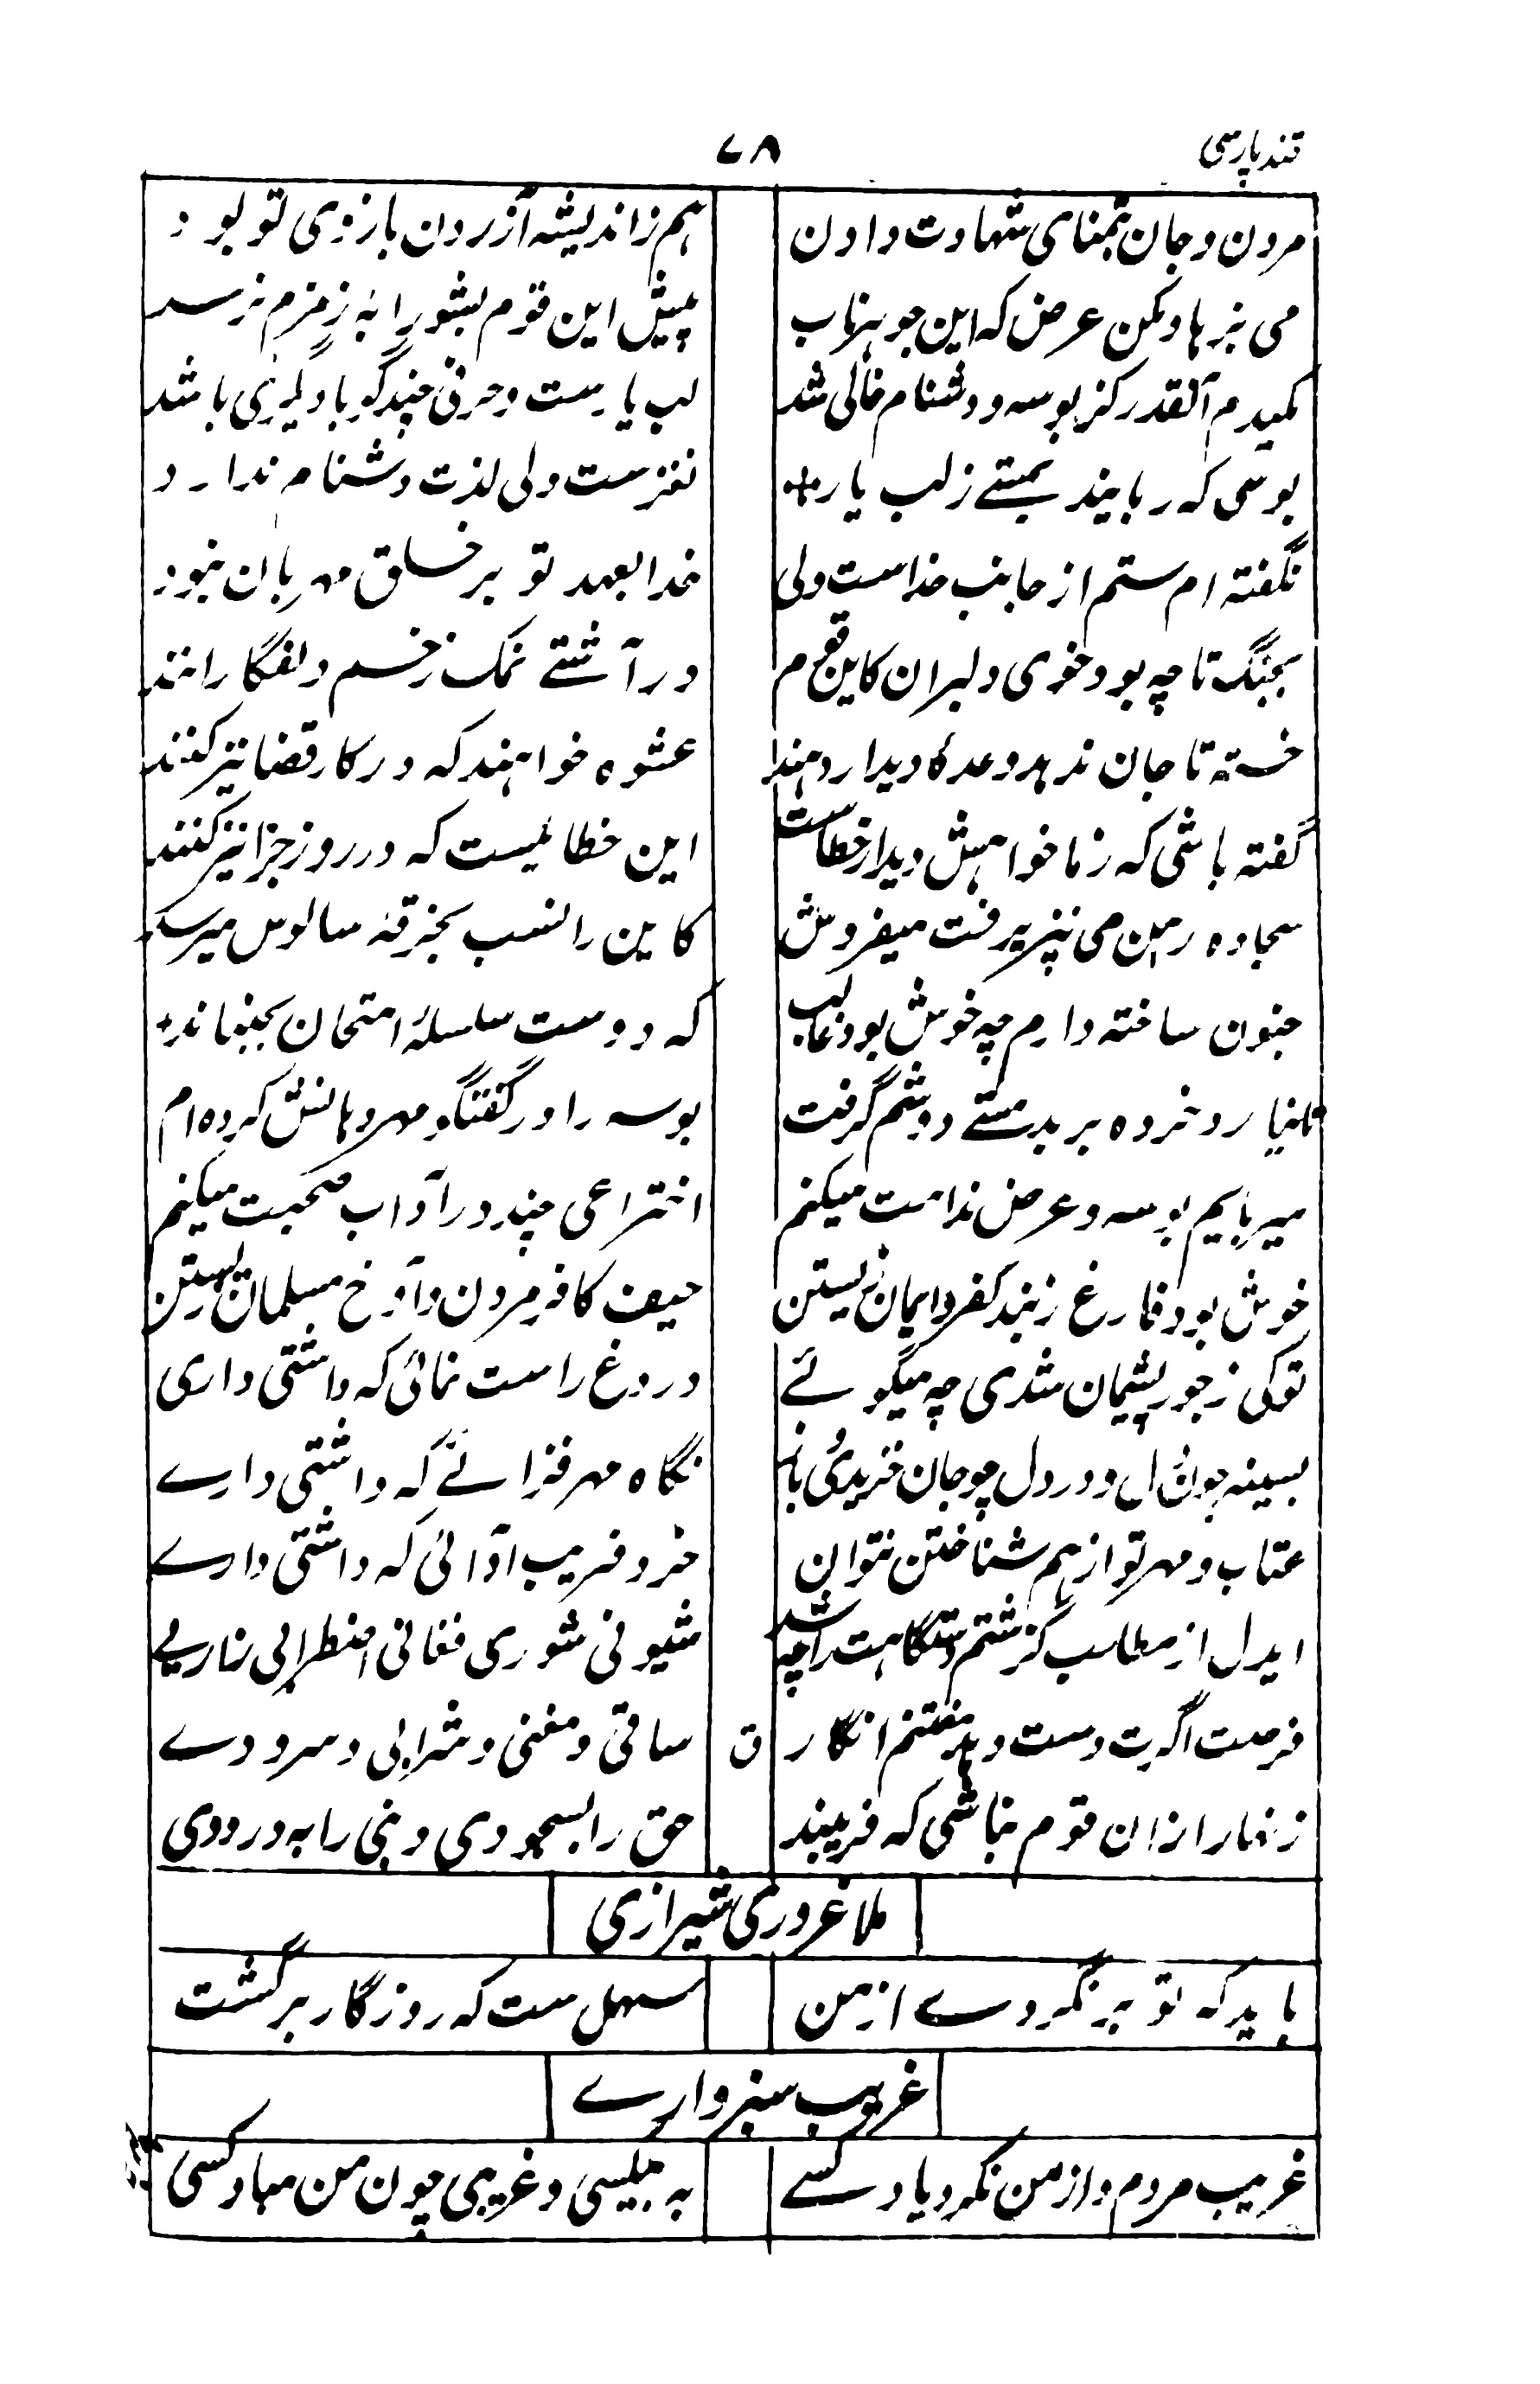 قند پارسی
۷۸
مردن و جان بتمنای شهادت دادن هم ز اندیشه آزردن بازوی تو بود
می بزهاد مکن عرض که این جوهر ناب پیش این قوم بشورابه زمزم نرسد
مکیدم آنقدر کز بوسه و دشنام خالی شد لب یارست و حرفی چند گو با دیگری باشد
بوسی که ربایند بمستے ز لب یار نغزست ولی لذت دشنام ندارد
نگفته ام ستم از جانب خداست ولی خدا بعهد تو بر خلق مهربان نبود
بجنگ تا چه بود خوی دلبران کاین قوم در آشتے نمک زخم دلفگارانند
خسته تا جان ندهد وعدۂ دیدار دهند عشوه خواهند که در کار قضا نیز کنند
گفته باشی که ز ما خواهش دیدار خطاست این خطائیست که در روز جزا نیز کنند
سجاده رهن می نپذیرفت میفروش کاین را نسب بخرقۀ سالوس میرسد
جنون ساخته دارم چه خوش بود غالب که دوست سلسلۀ امتحان بجنباند
تا نیارد خرده بر بدمستے دوشم گرفت بوسه را در گفتگو مهر دهانش کرده ام
میربایم بوسه و عرض ندامت میکنم اختراعی چند در آداب صحبت میکنم
خوش بود فارغ ز بند کفر و ایمان زیستن حیف کافر مردن و آوخ مسلمان زیستن
تو کی ز جور پشیمان شدی چه میگوئے دروغ راست نمائی که داشتی داری
بسینه چون دل و در دل چو جان خزیدی باز نگاه مهر فزائے که داشتی دارے
عتاب و مهر تو از هم شناختن نتوان خرد فریب ادائی که داشتی دارے
ایدل از مطالب گزشتم دستگاهت را چه شد شیونی شوری فغانی اضطرابی زاریے
فرصت اگرت دست دهد مغتنم انگار ق ساقی و مغنی و شرابی و سرودے
زنهار ازان قوم نباشی که فریبند حق را بسجودی و نبی را به درودی
ملا غروری شیرازی
باید که تو بر نگردے از من سهل ست که روزگار برگشت
غریب سبزوارے
غریب مردم و از من نکرد یاد کسے به بیکسی و غریبی چون من مباد کسی